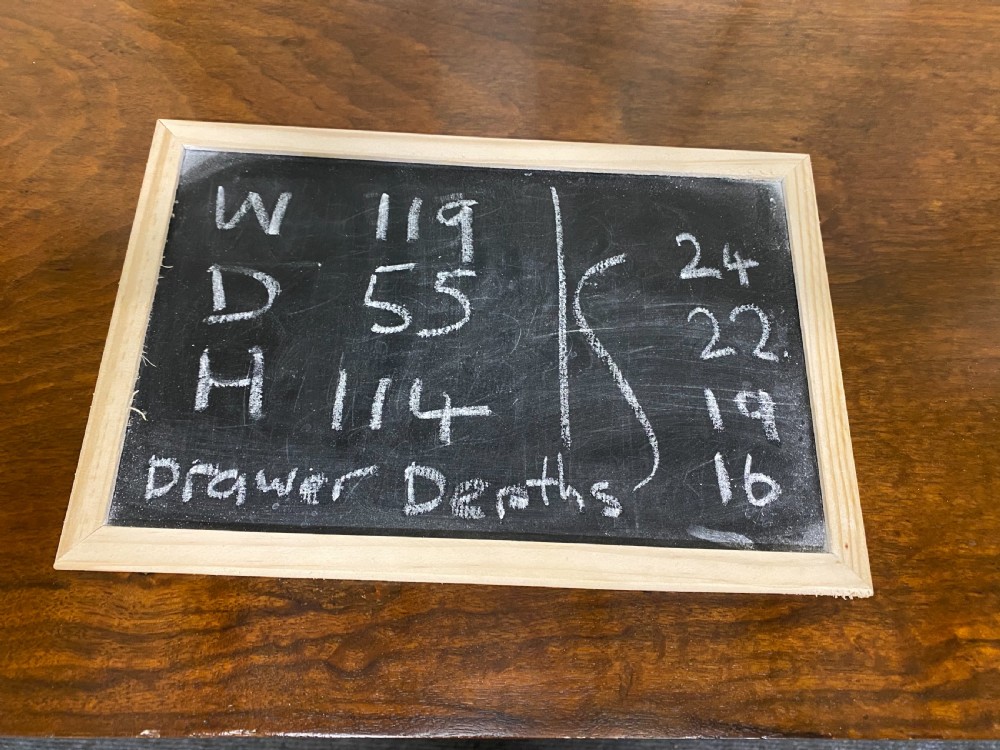 W 119
D 55
H 114
Drawer Depths
24
22.
19
16